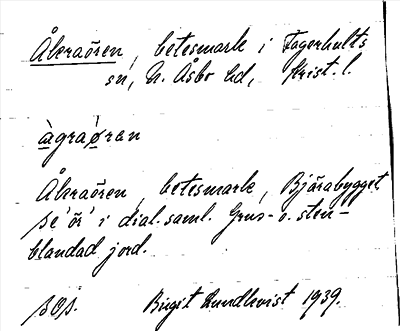 Åkraören, betesmark i Fagerhults
sn, N. Åsbo hd, Krist. l.
àgraø̀ran
Åkraören, betesmark, Bjärabygget
se 'ör' i dial. saml. Grus- o. sten-
blandad jord.
sos. Birgit Rundkvist 1939.